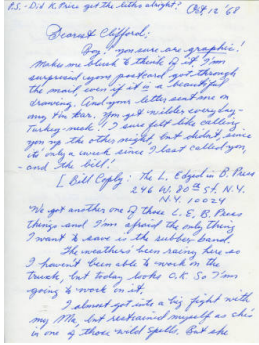 P.S. - Did K. Price get the lithos alright? Oct 12 '68
Dearest Clifford;
Boy - you sure are graphic!
Makes me blush to think of it. I'm
surprised your postcard got through
the mail, even if it is a beautiful
drawing. And your letter sent me on
my ear. You get wilder everyday-
Turkey-neck! I sure felt like calling
you up the other night, but didn't, since
its only a week since I last called you,
- and the bill!
[Bill Coply: The L. Edged in B. Press
246 W. 80th St. N.Y.
N.Y. 10024
We got another one of those L. E. B. Press
things and I'm afraid the only thing
I want to save is the rubber band.
The weather's been racing here so
I haven't been able to work on the
truck, but today looks O.K. So I'm
going to work on it.
I almost got into a big fight with
my Ma, but restrained myself as she
is in one of those wild spells. But she